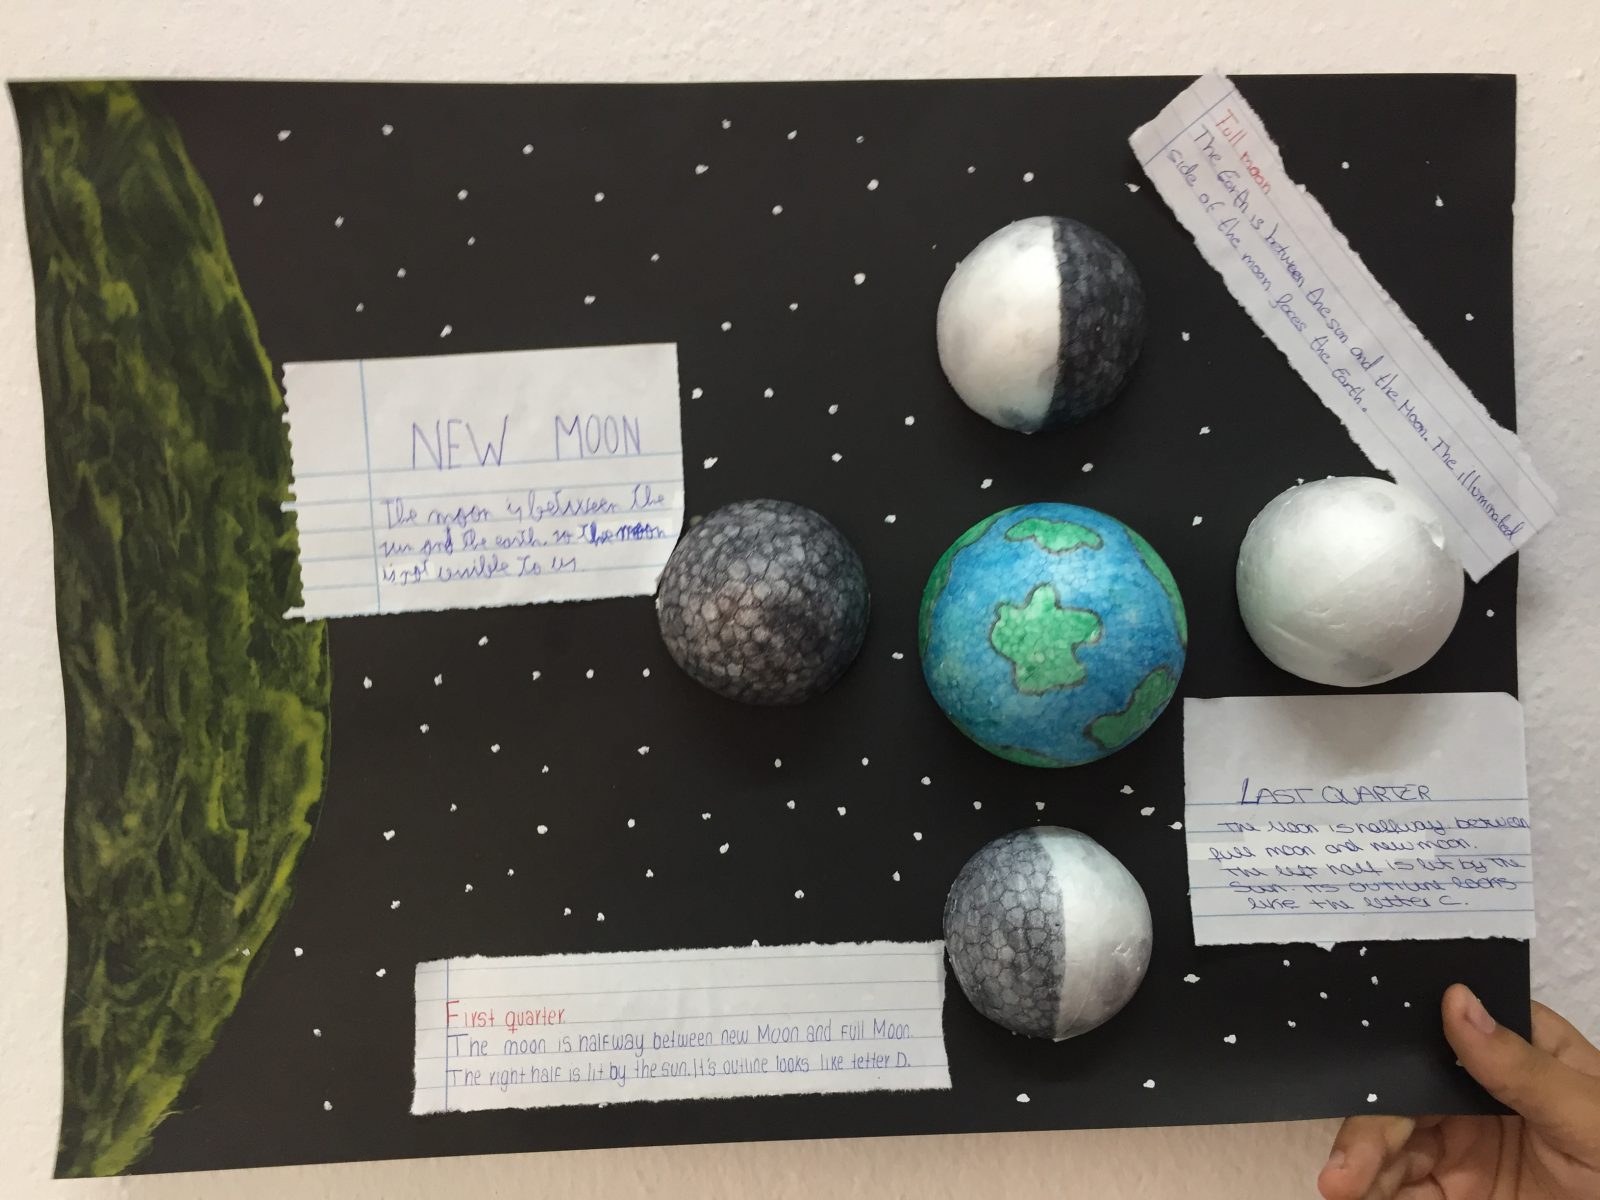 NEW MOON
The moon is between the
sun and the earth so the moon
is not visible to us
Full moon
The Earth is between the sun and the Moon. The illuminated
side of the moon faces the Earth.
LAST QUARTER
The Moon is halfway between
full moon and new moon.
The left half is lit by the
Sun. Its outline looks
like the letter C.
First quarter
The moon is halfway between new Moon and Full Moon.
The right half is lit by the sun. It's outline looks like letter D.